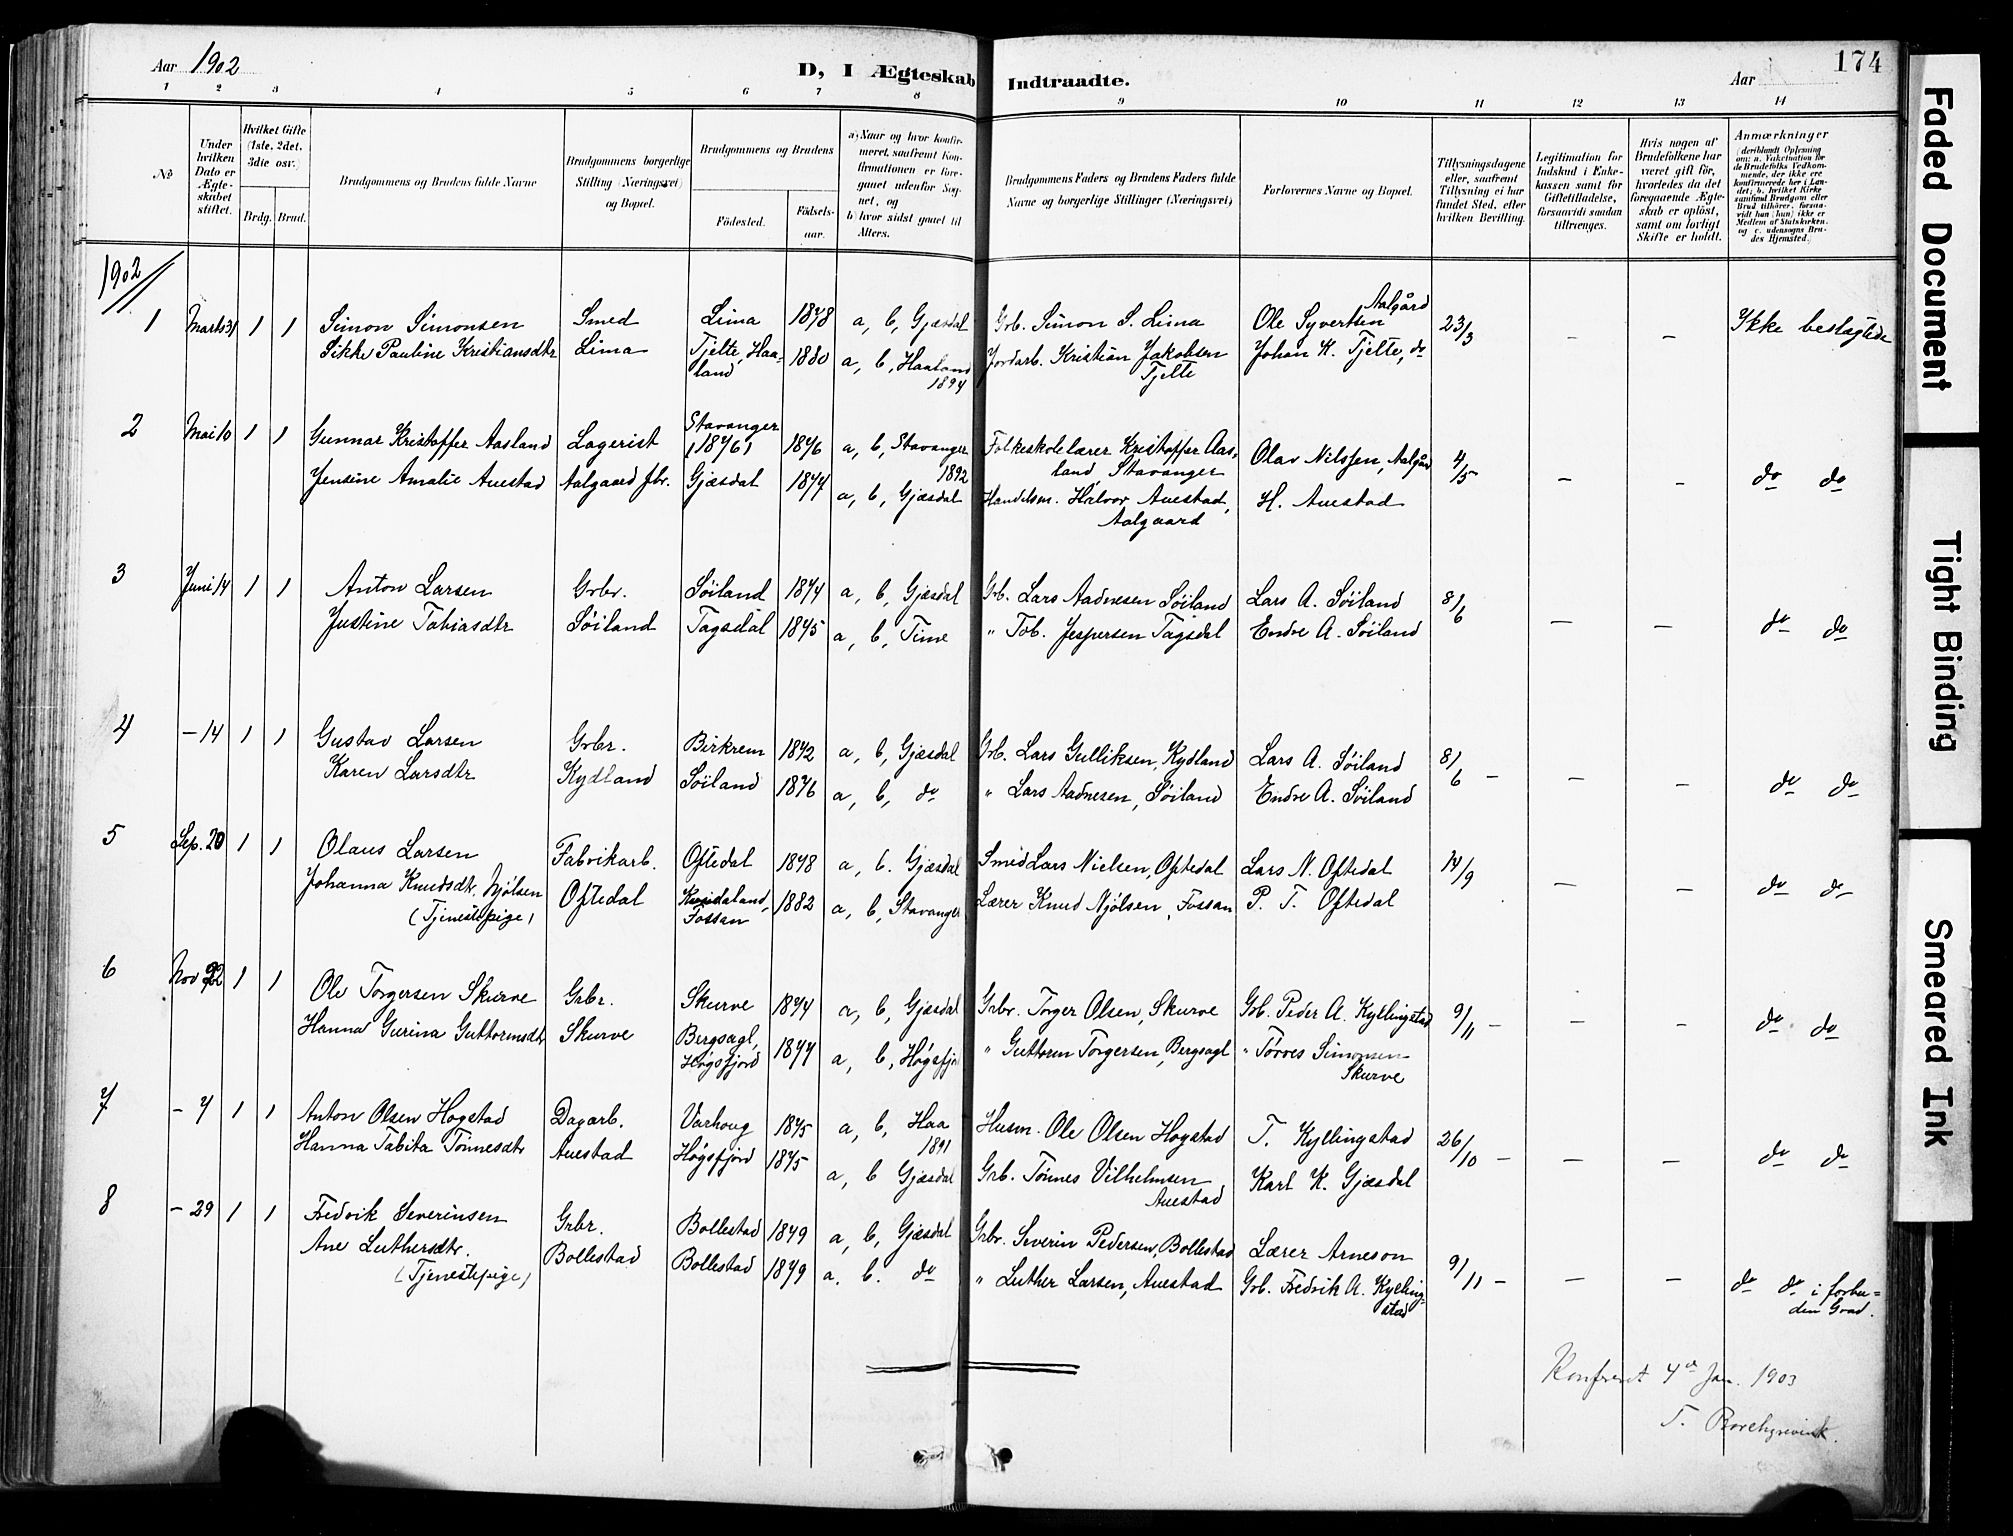 Aar 1902
D, I Ægteskab Indtraadte.
Aar
174
1 2 3 4 5 6 7 8 9 10 11 12 13 14
№
Under hvilken Dato er Ægteskabet stiftet.
Hvilket Gifte (1ste, 2det, 3die osv.)
Brdg. Brud.
Brudgommens og Brudens fulde Navne
Brudgommens borgerlige Stilling (Næringsvei) og Bopæl.
Brudgommens og Brudens
Fødested.
Fødselsaar.
a) Naar og hvor konfirmeret, saafremt Konfirmationen er foregaaet udenfor Sognet, og
b) hvor sidst gaaet til Alters.
Brudgommens Faders og Brudens Faders fulde Navne og borgerlige Stillinger (Næringsvei)
Forlovernes Navne og Bopæl.
Tillysningsdagene eller, saafremt Tillysning ei har fundet Sted, efter hvilken Bevilling.
Legitimation for Indskud i Enkekassen samt for Giftetilladelse, forsaavidt saadan tiltrænges.
Hvis nogen af Brudefolkene har været gift før, hvorledes da det foregaaende Ægteskab er opløst, samt om lovligt Skifte er holdt.
Anmærkninger (deriblandt Oplysning om: a. Vakcination for de Brudefolks Vedkommende, der ikke ere konfirmerede her i Landet; b. hvilket Kirkesamfund Brudgom eller Brud tilhører, forsaavidt han (hun) ikke er Medlem af Statskirken, og c. udensogns Brudes Hjemsted.)
1902
1 Marts 31 1 1 Simon Simonsen Smed Lima 1878 a, b, Gjæsdal Grb. Simon S. Lima Ole Syvertsen Aalgård 23/3 - - Ikke beslægtede
Sikke Pauline Kristiansdtr Lima Tjelte, Haaland 1880 a, b, Haaland 1894 Jordarb. Kristian Jakobsen Tjelte Johan K. Tjelte, do
2 Mai 10 1 1 Gunnar Kristoffer Aasland Lagerist Stavanger (1876) 1876 a, b, Stavanger 1892 Folkeskolelærer Kristoffer Aasland, Stavanger Olav Nilssen, Aalgård 4/5 - - do do
Jensine Amalie Auestad Aalgaard fbr. Gjæsdal 1877 a, b, Gjæsdal Handelsm. Halvor Auestad, Aalgaard H. Auestad
3 Juni 14 1 1 Anton Larsen Grbr. Søiland 1874 a, b, Gjæsdal Grb. Lars Aadnesen Søiland Lars A. Søiland 8/6 - - do do
Justine Tobiasdtr Søiland Tagsdal 1875 a, b, Time " Tob. Jespersen Tagsdal Endre A. Søiland
4 - 14 1 1 Gustav Larsen Grbr. Birkrem 1872 a, b, Gjæsdal Grb. Lars Gulliksen, Kydland Lars A. Søiland 8/6 - - - do do
Karen Larsdtr Kydland Søiland 1876 a, b, do " Lars Aadnesen, Søiland Endre A. Søiland
5 Sep. 20 1 1 Olaus Larsen Fabrikarb. Oftedal 1878 a, b. Gjæsdal Smed Lars Nielsen, Oftedal Lars N. Oftedal 14/9 - - do do
Johanna Knudsdtr. Njølsen (Tjenestepige) Oftedal Fossan 1882 a, b, Stavanger Lærer Knud Njølsen, Fossan P. T. Oftedal
6 Nov 22 1 1 Ole Torgersen Skurve Grbr. Skurve 1874 a, b, Gjæsdal Grbr. Torger Olsen, Skurve Gb. Peder A. Kyllingstad 9/11 - - - do do
Hanna Gurina Guttormsdtr Skurve Bergsagl, Høgsfjord 1877 a, b, Høgsfjord " Guttorm Torgersen, Bergsagl " Tørres Simonsen Skurve
7 - 7 1 1 Anton Olsen Hogstad Dagarb. Varhoug 1875 a, b, Haa 1891 Husm. Ole Olsen Hogstad T. Kyllingstad 26/10 - - - do do
Hanna Tabita Tønnesdtr Auestad Høgsfjord 1875 a, b Gjæsdal Grb. Tønnes Vilhelmsen Auestad Karl K. Gjæsdal
8 - 29 1 1 Fredrik Severinsen Grbr. Bollestad 1879 a, b, Gjæsdal Grbr. Severin Pedersen, Bollestad Lærer Arneson 9/11 - - - do do i forbuden Grad.
Ane Luthersdtr. (Tjenestepige) Bollestad Bollestad 1879 a. b. do " Luther Larsen, Auestad Grb. Fredrik A. Kyllingstad
Konfereret 4de Jan. 1903
T. Borchgrevink.
Faded Document
Tight Binding
Smeared Ink